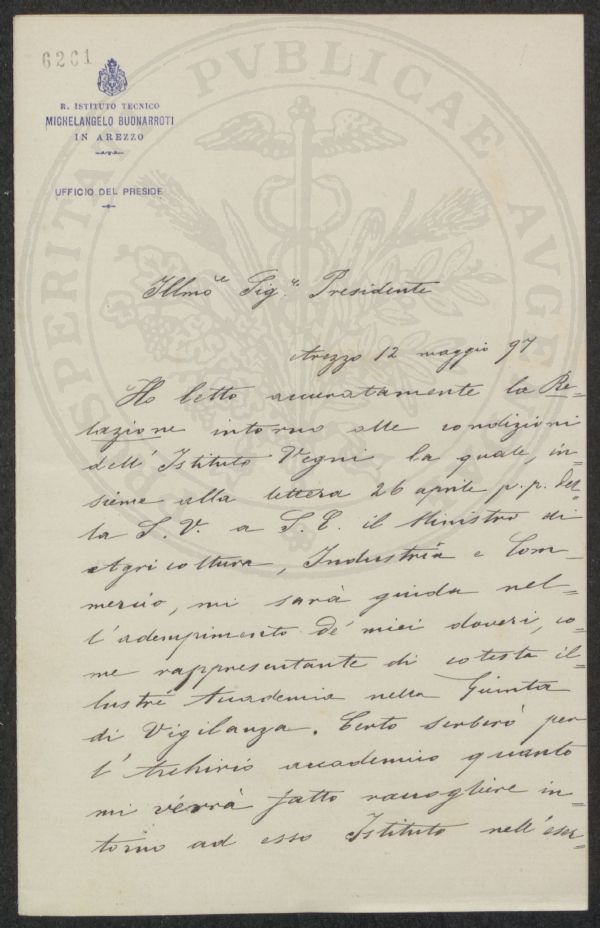 6201
R. ISTITUTO TECNICO
MICHELANGELO BUONARROTI
IN AREZZO
UFFICIO DEL PRESIDE
PROSPERITATI PVBLICAE AVGENDAE
Illmo Sig.r Presidente
Arezzo 12 maggio 97
Ho letto accuratamente la Re=
lazione intorno alle condizioni
dell' Istituto Vegni la quale, in=
sieme alla lettera 26 aprile p. p. del=
la S. V. a S. E. il Ministro di
Agricoltura, Industria e Com=
mercio, mi sarà guida nel=
l'adempimento de' miei doveri, co=
me rappresentante di cotesta il=
lustre Accademia nella Giunta
di Vigilanza. Certo serberò per
l'Archivio accademico quanto
mi verrà fatto raccogliere in=
torno ad esso Istituto nell'eser=